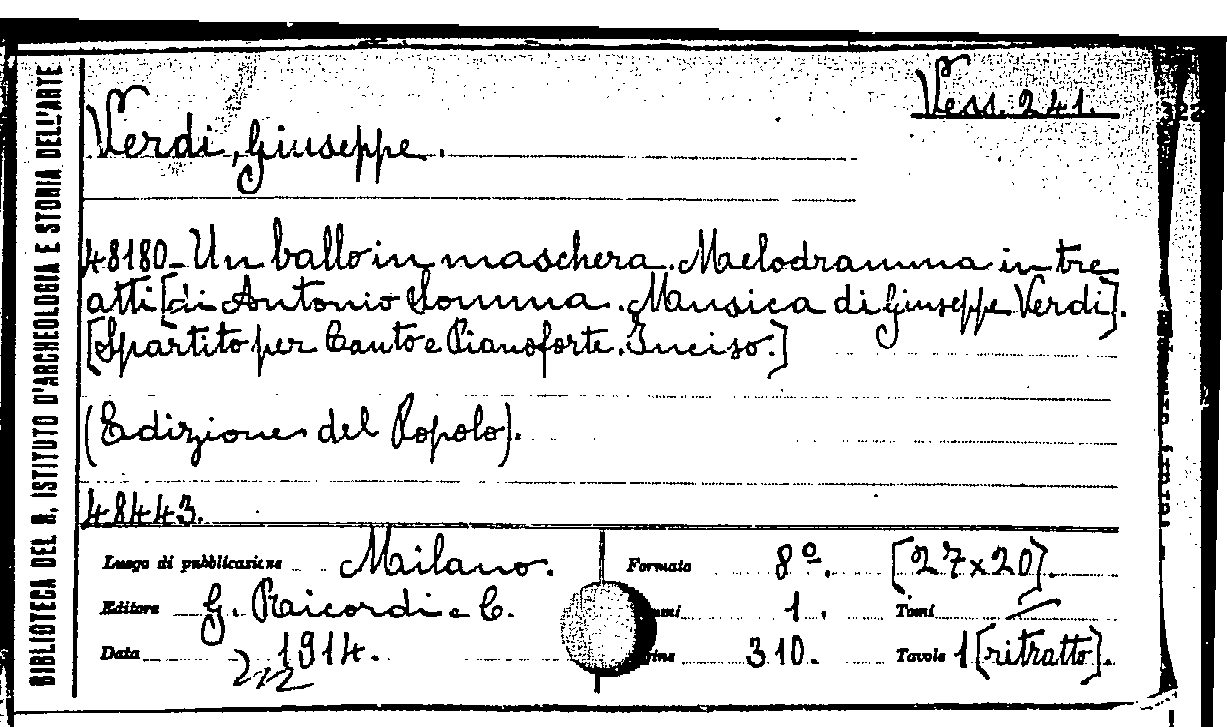 BIBLIOTECA DEL R. ISTITUTO D'ARCHEOLOGIA E STORIA DELL'ARTE
Vess. 241.
Verdi, Giuseppe.
48180-Un ballo in maschera. Melodramma in tre
atti [di Antonio Somma. Musica di Giuseppe Verdi].
[Spartito per Canto e Pianoforte. Inciso.]
(Edizione del Popolo).
48443.
Luogo di pubblicazione Milano. Formato 8º. [27x20].
Editore G. Ricordi e C. 1. Tomi —
Data 1914. 310. Tavole 1 [ritratto].